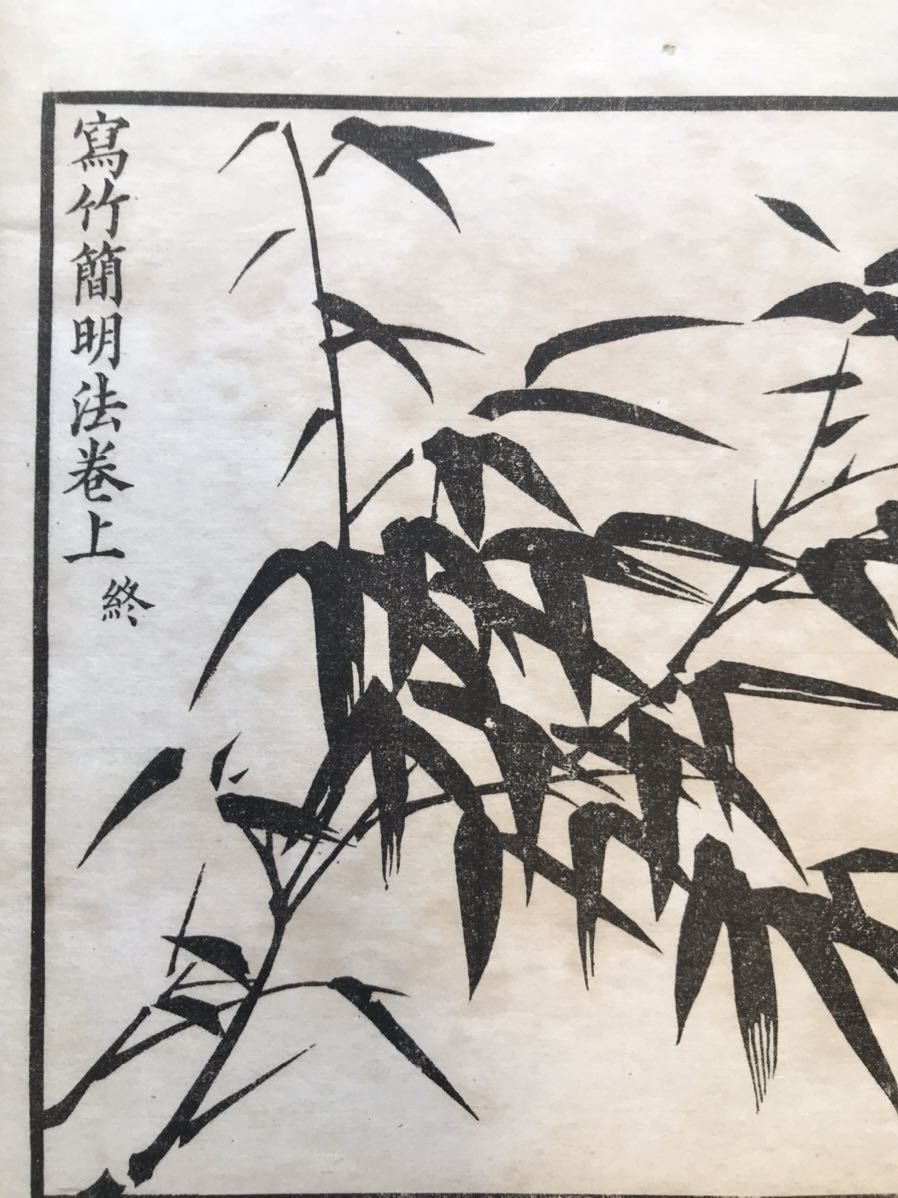 寫竹簡明法卷上
終